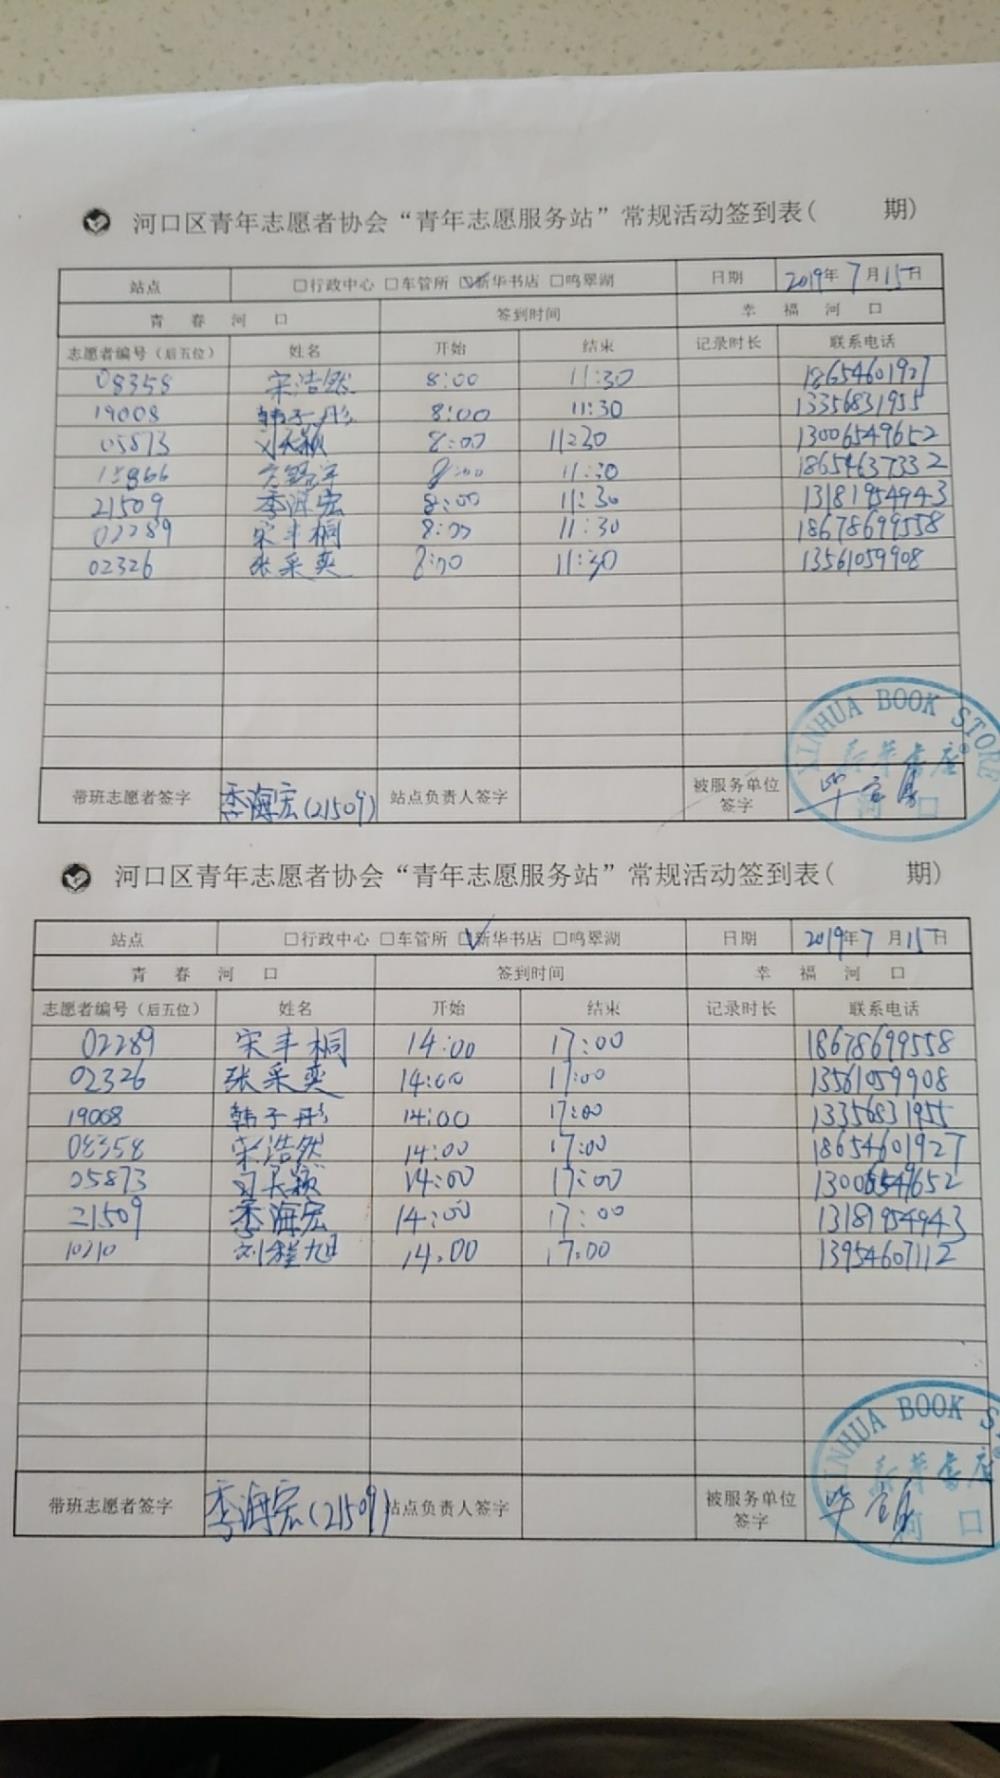 河口区青年志愿者协会“青年志愿服务站”常规活动签到表( 期)
站点 □行政中心 □车管所 ☑新华书店 □鸣翠湖 日期 2019年7月15日
青 春 河 口 签到时间 幸 福 河 口
志愿者编号（后五位） 姓名 开始 结束 记录时长 联系电话
08358 宋浩然 8:00 11:30 18654601927
19008 韩子彤 8:00 11:30 13356831955
05873 刘天颖 8:00 11:30 13006549652
8:00 11:30 18654637332
21509 季海宏 8:00 11:30 13181954943
02289 宋丰桐 8:00 11:30 18678699558
02326 张采奕 8:00 11:30 13561059908
带班志愿者签字 季海宏(21509) 站点负责人签字 被服务单位签字
XINHUA BOOK STORE
新华书店
河口
河口区青年志愿者协会“青年志愿服务站”常规活动签到表( 期)
站点 □行政中心 □车管所 ☑新华书店 □鸣翠湖 日期 2019年7月15日
青 春 河 口 签到时间 幸 福 河 口
志愿者编号（后五位） 姓名 开始 结束 记录时长 联系电话
02289 宋丰桐 14:00 17:00 18678699558
02326 张采奕 14:00 17:00 13561059908
19008 韩子彤 14:00 17:00 13356831955
08358 宋浩然 14:00 17:00 18654601927
05873 刘天颖 14:00 17:00 13006549652
21509 季海宏 14:00 17:00 13181954943
10210 刘程旭 14:00 17:00 13954607112
带班志愿者签字 季海宏(21509) 站点负责人签字 被服务单位签字
XINHUA BOOK ST
新华书店
河口